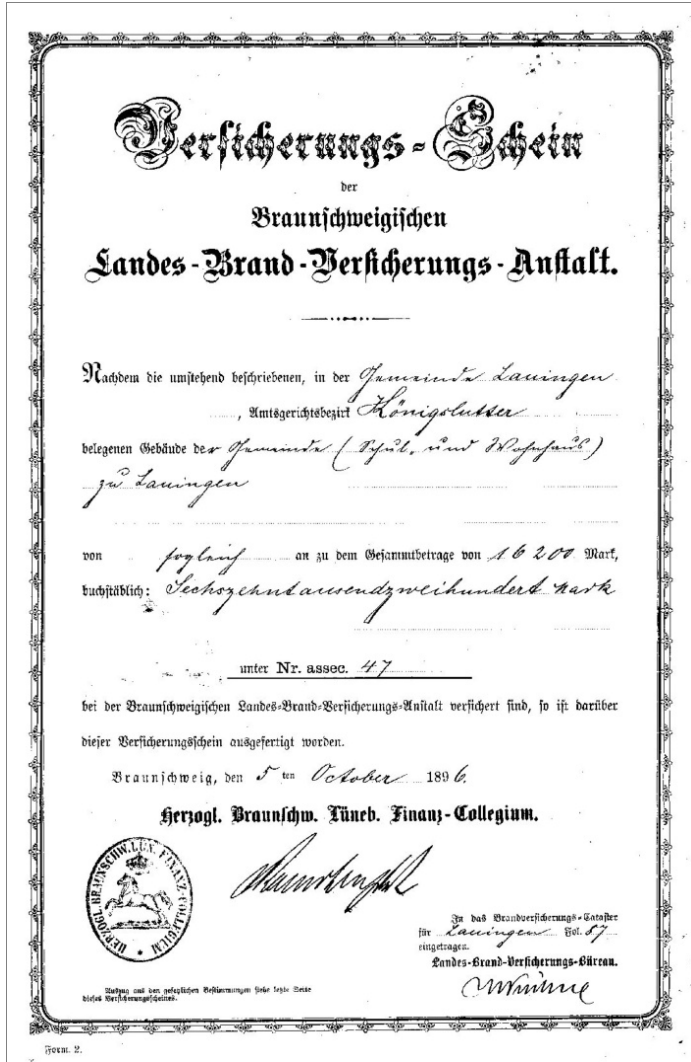 Versicherungs-Schein
der
Braunschweigischen
Landes-Brand-Versicherungs-Anstalt.
Nachdem die umstehend beschriebenen, in der Gemeinde Lauingen
, Amtsgerichtsbezirk Königslutter
belegenen Gebäude der Gemeinde (Schul- und Wohnhaus)
zu Lauingen
von sogleich an zu dem Gesammtbetrage von 16 200 Mark,
buchstäblich: Sechszehntausendzweihundert Mark
unter Nr. assec. 47
bei der Braunschweigischen Landes-Brand-Versicherungs-Anstalt versichert sind, so ist darüber
dieser Versicherungsschein ausgefertigt worden.
Braunschweig, den 5 ten October 1896.
Herzogl. Braunschw. Lüneb. Finanz-Collegium.
HERZOGL. BRAUNSCHW. LÜN. FINANZ-COLLEGIUM
In das Brandversicherungs-Cataster
für Lauingen Fol. 57
eingetragen.
Landes-Brand-Versicherungs-Büreau.
Auszug aus den gesetzlichen Bestimmungen siehe letzte Seite
dieses Versicherungsscheines.
Form. 2.